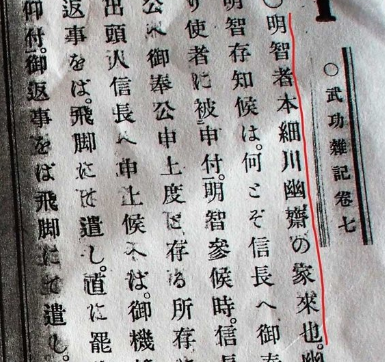 ○武功雜記卷七
○明智者本細川幽齋の家來也。幽
明智存知候は。何とぞ信長へ御奉
り使者に被申付。明智參候時。信長
公へ御奉公申上度と存る所存
出頭人信長へ申上候へば。御機
返事をば。飛脚にて遣し。直に罷
仰付。御返事をば飛脚にて遣し。